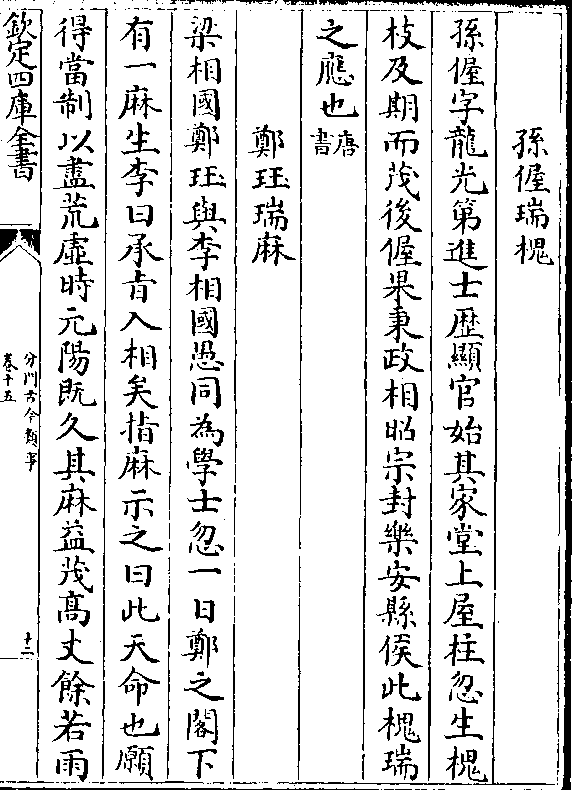 孫偓瑞槐
孫偓字龍光第進士歴顯官始其家堂上屋柱忽生槐
枝及期而茂後偓果秉政相昭宗封樂安縣侯此槐瑞
之應也唐書
鄭珏瑞麻
梁相國鄭珏與李相國愚同為學士忽一日鄭之閣下
有一麻生李曰承㫖入相矣指麻示之曰此天命也願
得當制以盡荒虛時元陽既久其麻益茂髙丈餘若雨
欽定四庫全書
分門古今類事
卷十五
十二